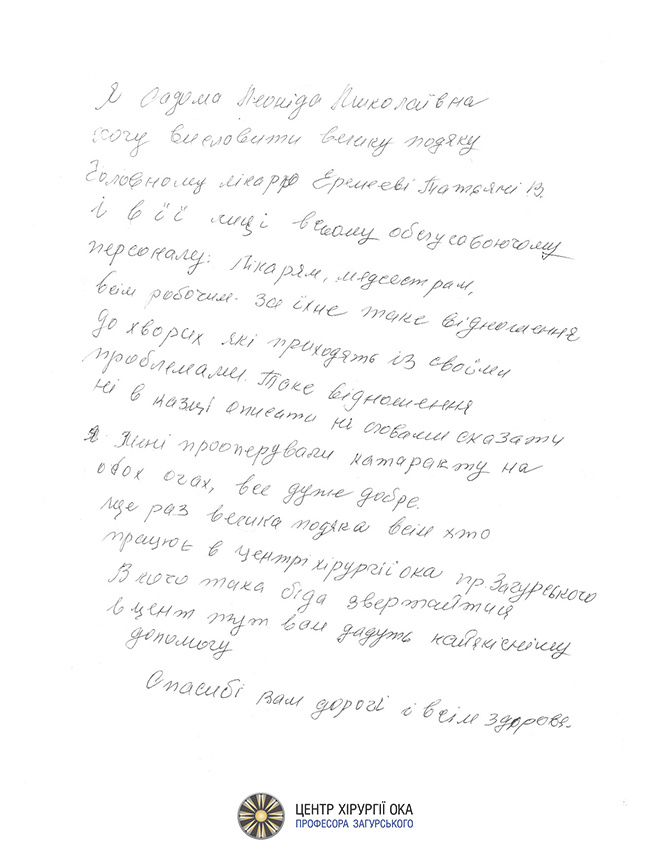 Я Садома Леоніда Миколаївна
хочу висловити велику подяку
Головному лікарю Еремєєві Татьяні В.
і в її лиці всьому обслуговоючому
персоналу: Лікарям, медсестрам,
всім робочим. За їхнє таке відношення
до хворих які приходять із своїми
проблемами. Таке відношення
ні в казці описати ні словами сказати
Я Мені прооперували катаракту на
обох очах, все дуже добре.
ще раз велика подяка всім хто
працює в Центрі хірургії ока пр. Загурського
В кого така біда звертайтися
в цент тут вам дадуть найякіснішу
допомогу
Спасибі вам дорогі і всім здоровя.
ЦЕНТР ХІРУРГІЇ ОКА
ПРОФЕСОРА ЗАГУРСЬКОГО